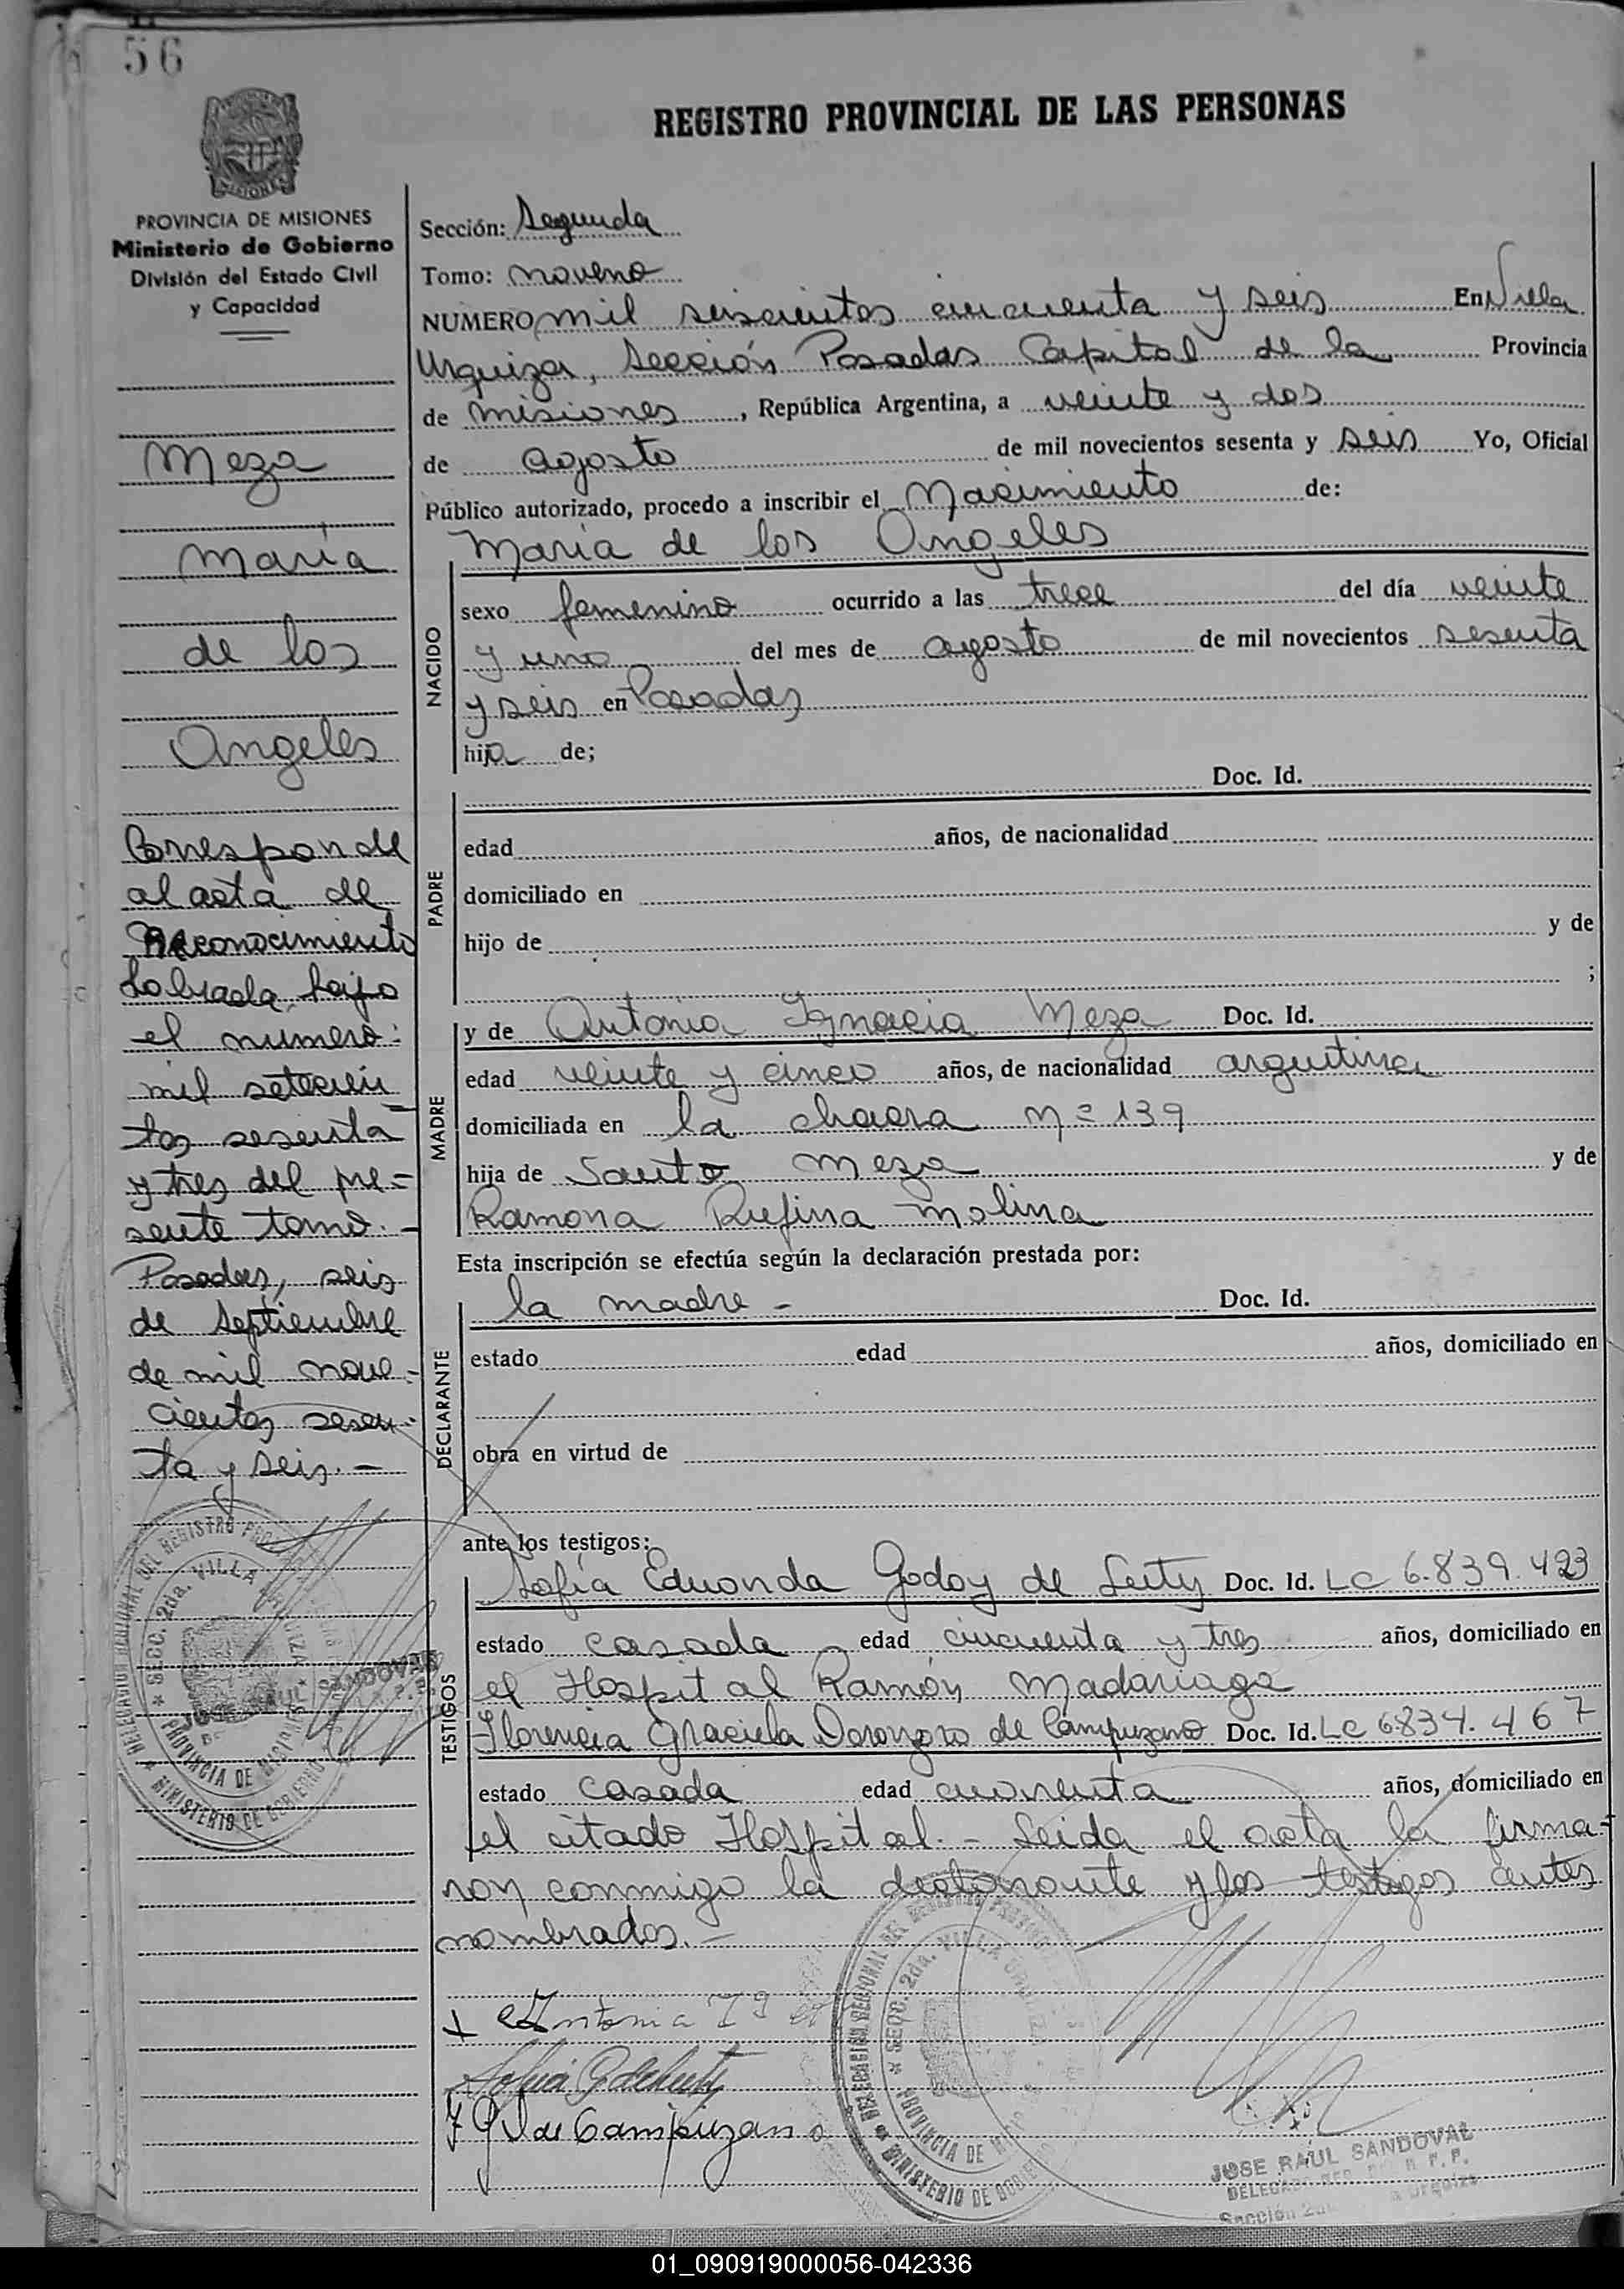 56
REGISTRO PROVINCIAL DE LAS PERSONAS
MISIONES
PROVINCIA DE MISIONES
Ministerio de Gobierno
División del Estado Civil
y Capacidad
Meza
María
de los
Angeles
Corresponde
al acta de
Reconocimiento
Labrada bajo
el número:
mil setecien
tos sesenta
y tres del pre=
sente tomo.-
Posadas, seis
de Septiembre
de mil nove-
cientos sesen-
ta y seis.-
Sección: Segunda
Tomo: noveno
NUMERO mil seiscientos cincuenta y seis En Villa
Urquiza, Sección Posadas Capital de la Provincia
de Misiones, República Argentina, a veinte y dos
de agosto de mil novecientos sesenta y seis Yo, Oficial
Público autorizado, procedo a inscribir el Nacimiento de:
María de los Angeles
NACIDO
sexo femenino ocurrido a las trece del día veinte
y uno del mes de agosto de mil novecientos sesenta
y seis en Posadas
hija de;
Doc. Id.
PADRE
edad años, de nacionalidad
domiciliado en
hijo de y de
;
MADRE
y de Antonia Ignacia Meza Doc. Id.
edad veinte y cinco años, de nacionalidad argentina
domiciliada en la chacra Nº 139
hija de Santo Meza y de
Ramona Rufina Molina
Esta inscripción se efectúa según la declaración prestada por:
DECLARANTE
la madre - Doc. Id.
estado edad años, domiciliado en
obra en virtud de
ante los testigos:
TESTIGOS
Sofía Eduonda Godoy de Doc. Id. LC 6.839.423
estado casada - edad cincuenta y tres años, domiciliado en
el Hospital Ramón Madariaga
Florencia Graciela de Campuzano Doc. Id. LC 6.834.467
estado casada edad cuarenta años, domiciliado en
el citado Hospital.- Leida el acta la firma-
ron conmigo la declarante y los testigos antes
nombrados.-
+ Antonia
Sofia G de
de Campuzano
DELEGACION REGIONAL DEL REGISTRO
SECC. 2da. VILLA URQUIZA
PROVINCIA DE MISIONES
MINISTERIO DE GOBIERNO
DELEGACION REGIONAL DEL REGISTRO
SECC. 2da. VILLA URQUIZA
PROVINCIA DE MISIONES
MINISTERIO DE GOBIERNO
JOSE RAUL SANDOVAL
01_090919000056-042336